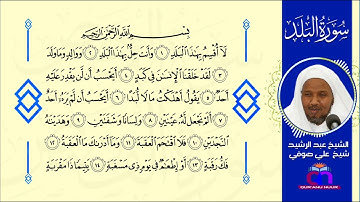 بِسْمِ اللَّهِ الرَّحْمَٰنِ الرَّحِيمِ
لَا أُقْسِمُ بِهَٰذَا الْبَلَدِ ١ وَأَنتَ حِلٌّ بِهَٰذَا الْبَلَدِ ٢ وَوَالِدٍ وَمَا وَلَدَ
٣ لَقَدْ خَلَقْنَا الْإِنسَانَ فِي كَبَدٍ ٤ أَيَحْسَبُ أَن لَّن يَقْدِرَ عَلَيْهِ
أَحَدٌ ٥ يَقُولُ أَهْلَكْتُ مَالًا لُّبَدًا ٦ أَيَحْسَبُ أَن لَّمْ يَرَهُ أَحَدٌ
٧ أَلَمْ نَجْعَل لَّهُ عَيْنَيْنِ ٨ وَلِسَانًا وَشَفَتَيْنِ ٩ وَهَدَيْنَاهُ
النَّجْدَيْنِ ١٠ فَلَا اقْتَحَمَ الْعَقَبَةَ ١١ وَمَا أَدْرَاكَ مَا الْعَقَبَةُ ١٢
فَكُّ رَقَبَةٍ ١٣ أَوْ إِطْعَامٌ فِي يَوْمٍ ذِي مَسْغَبَةٍ ١٤ يَتِيمًا ذَا مَقْرَبَةٍ
سورة البلد
الشيخ عبد الرشيد
شيخ علي صوفي
QUR'ANU HUUR